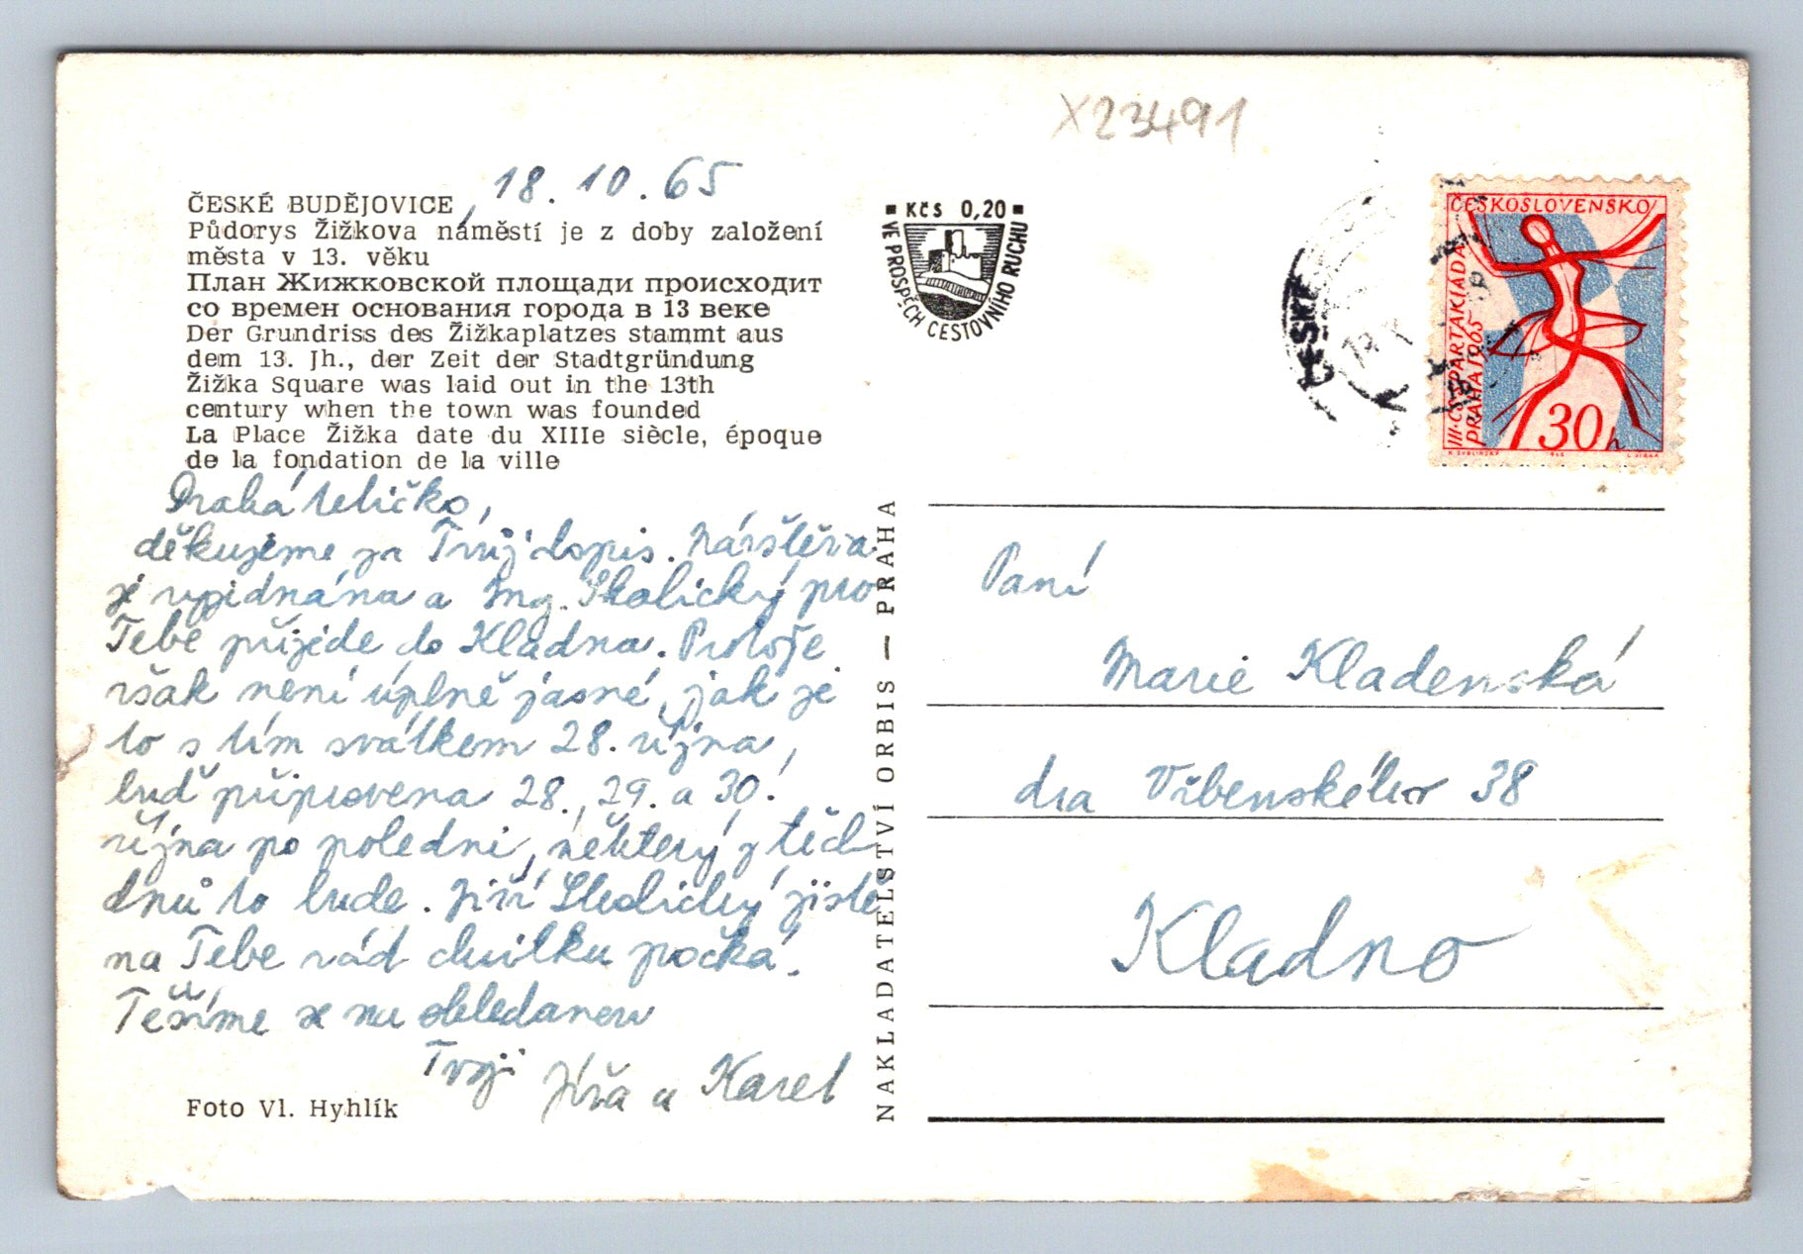 X23491
18.10.65
ČESKÉ BUDĚJOVICE,
Půdorys Žižkova náměstí je z doby založení
města v 13. věku
План Жижковской площади происходит
со времен основания города в 13 веке
Der Grundriss des Žižkaplatzes stammt aus
dem 13. Jh., der Zeit der Stadtgründung
Žižka Square was laid out in the 13th
century when the town was founded
La Place Žižka date du XIIIe siècle, époque
de la fondation de la ville
děkujeme za Tvůj dopis. Návštěva
je vyjednána a Ing. Skalický pro
Tebe přijede do Kladna. Protože
však není úplně jasné, jak je
to s tím svátkem 28. října,
buď připravena 28., 29. a 30.
října po poledni, některý z těch
dnů to bude. Jiří Skalický jistě
na Tebe rád chvilku počká.
Těšíme se na shledanou
Tvoji Jířa a Karel
Foto Vl. Hyhlík
NAKLADATELSTVÍ ORBIS — PRAHA
Kčs 0,20
VE PROSPĚCH CESTOVNÍHO RUCHU
ČESKOSLOVENSKO
III. CS. SPARTAKIÁDA
PRAHA 1965
30h
ČESKÉ
Paní
Marie Kladenská
dra Vrbenského 38
Kladno